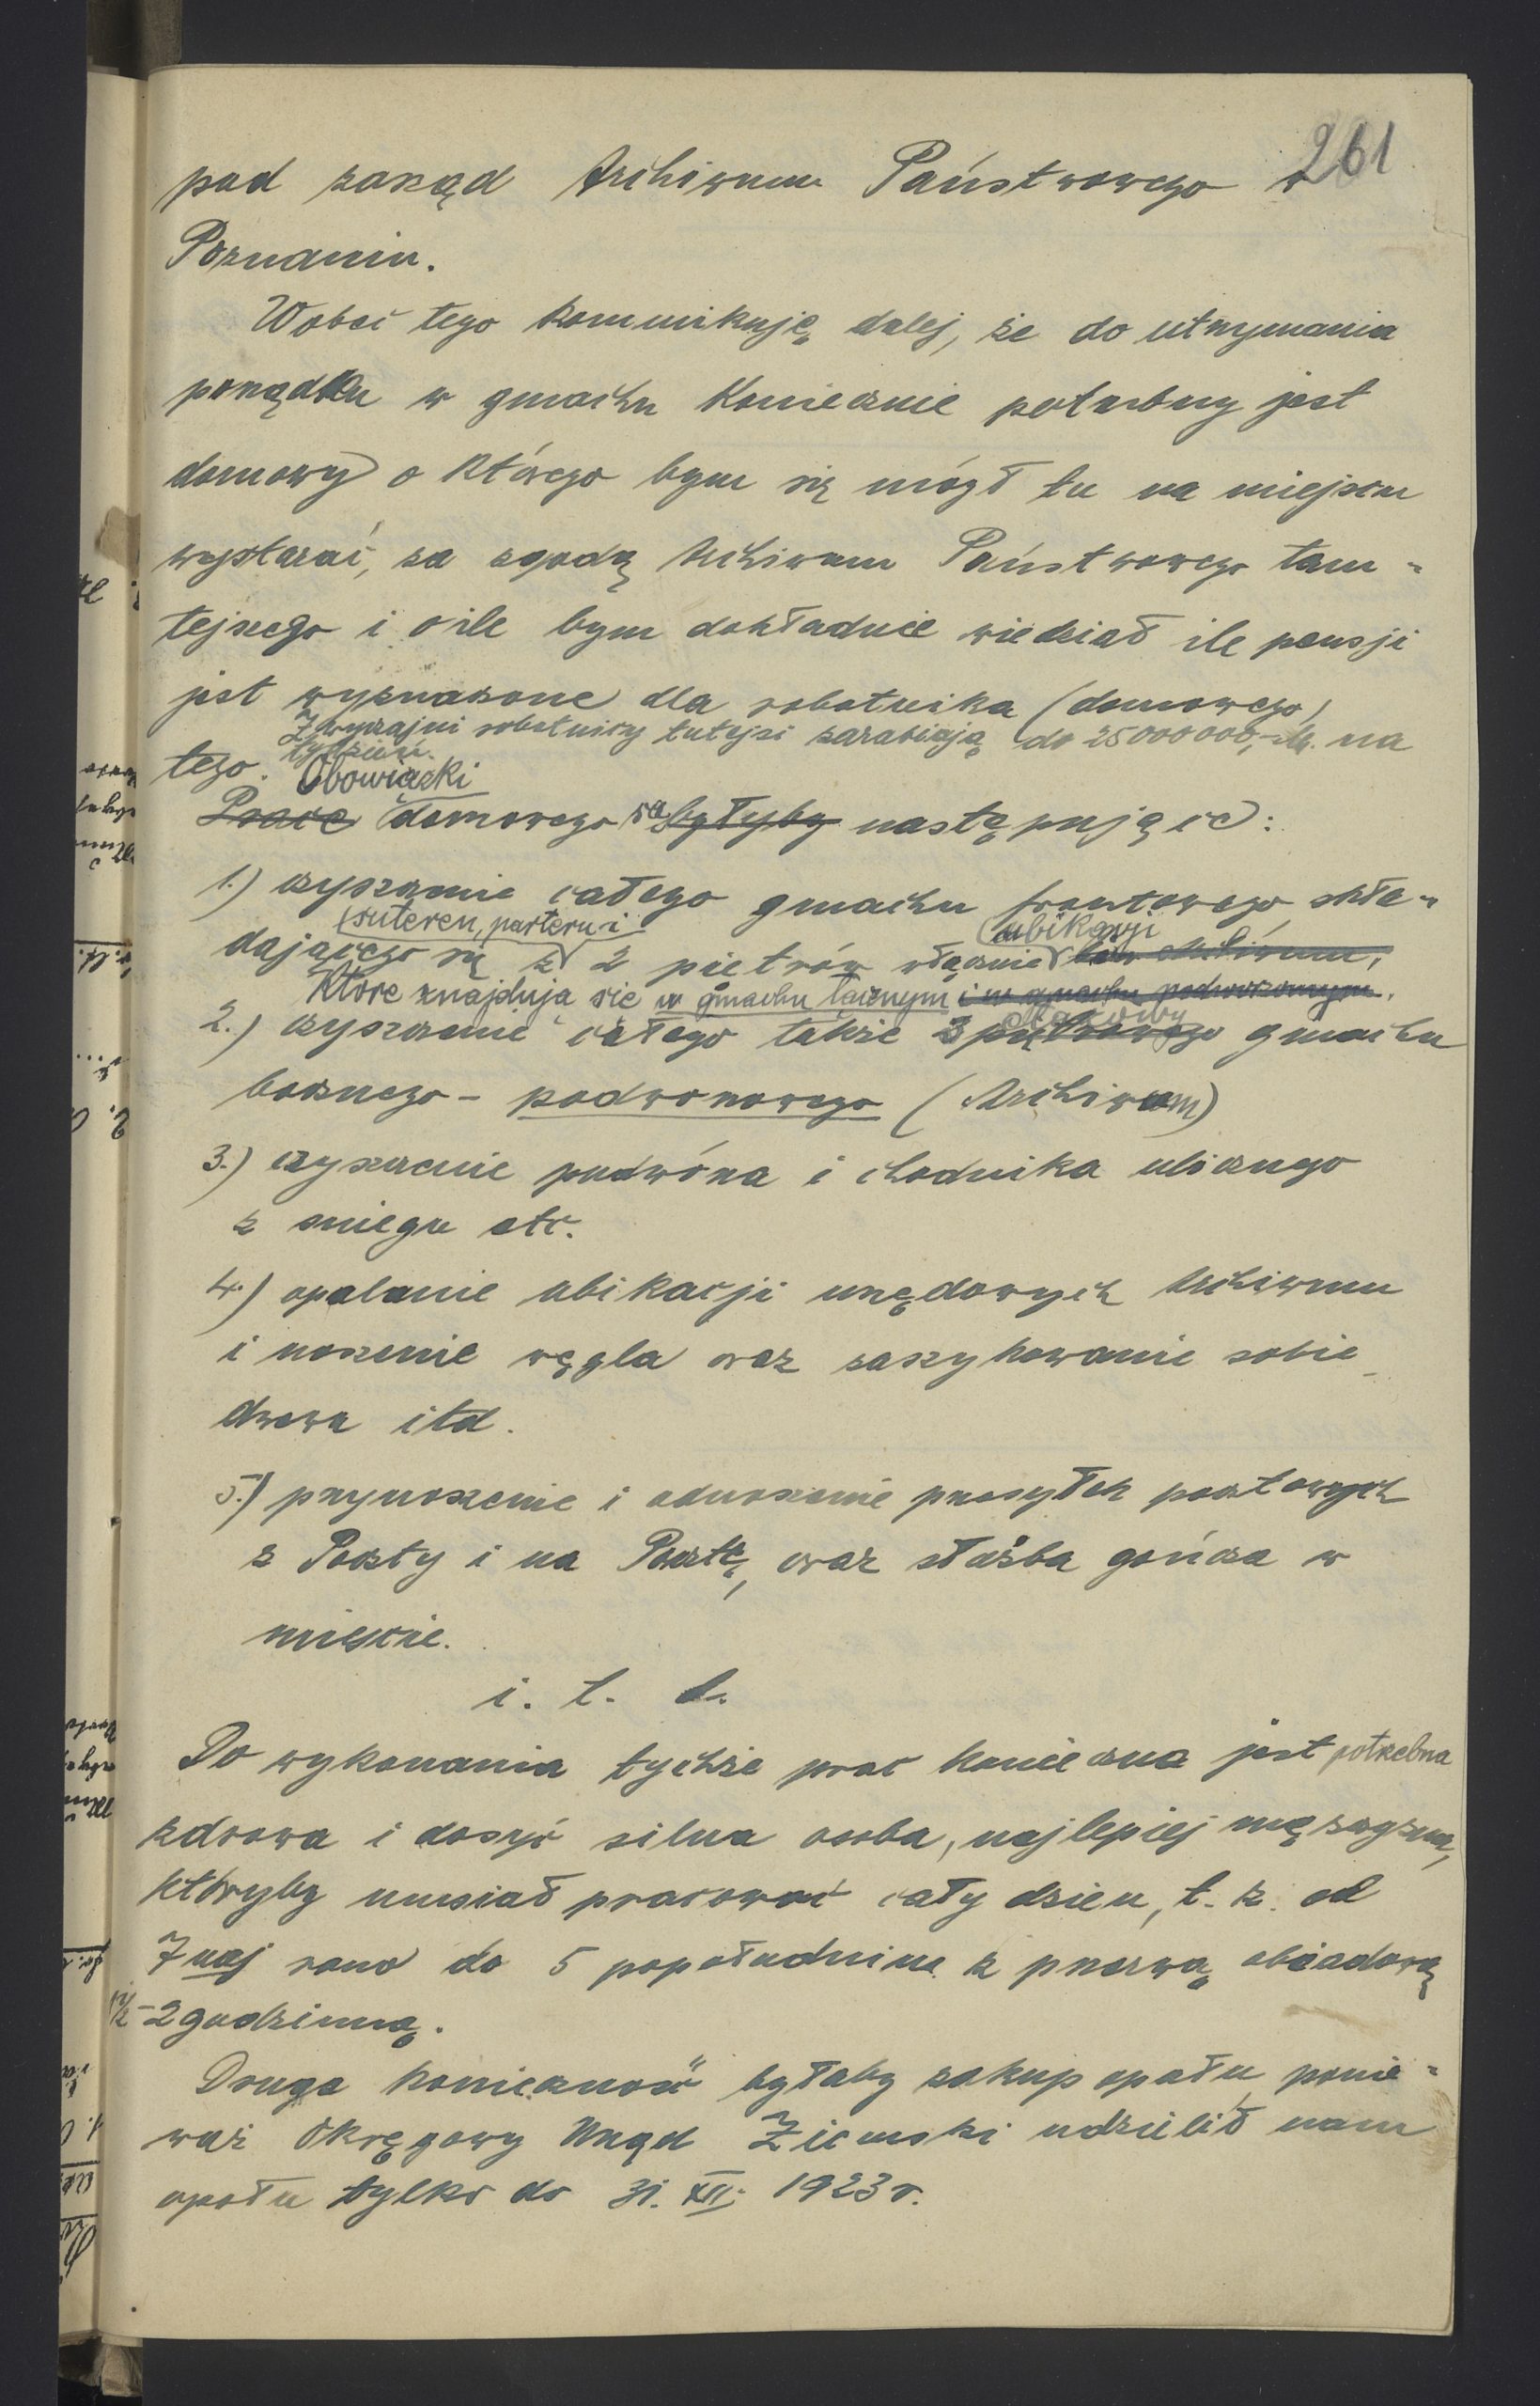 261
pod zarząd Archiwum Państwowego w
Poznaniu.
Wobec tego komunikuję dalej, że do utrzymania
porządku w gmachu koniecznie potrzebny jest
domowy o którego bym się mógł tu na miejscu
wystarać, za zgodą Archiwum Państwowego tam-
tejszego i o ile bym dokładnie wiedział ile pensji
jest wyznaczone dla robotnika (domowego)
Zwyczajni robotnicy tutejsi zarabiają do 25000000,- M. na
tydzień.
tego.
Obowiązki
Prace domowego są byłyby następujące:
1.) czyszczenie całego gmachu frontowego skła-
suteren, parteru i
ubikacyi
dającego się z 2 pietrów włącznie
które znajdują sie w gmachu łącznym i w gmachu podwórzowym.
2.) czyszczenie całego także 3 piętrowego gmachu
bocznego - podwórzowego (Archiwum)
3.) czyszczenie podwórza i chodnika ulicznego
z sniegu etc.
4.) opalanie ubikacji urzędowych Archiwum
i noszenie węgla oraz zaszykowanie sobie
drzewa itd.
5.) przynoszenie i odnoszenie przesyłek pocztowych
z Poczty i na Pocztę, oraz służba gończa w
mieście.
i. t. d.
Do wykonania tychże prac konieczna jest potrzebna
zdrowa i dosyć silna osoba, najlepiej mężczyzna,
któryby musiał pracować cały dzień, t. z. od
7 mej rano do 5 popołudniu z przerwą obiadową
1½-2 godzinną.
Druga konieczność byłaby zakup opału, ponie-
waż Okręgowy Urząd Ziemski udzielił nam
opału tylko do 31. XII. 1923 r.